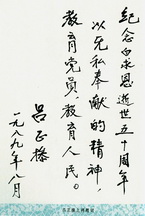 纪念白求恩逝世五十周年
以无私奉献的精神，
教育党员教育人民。
吕正操
一九八九年八月